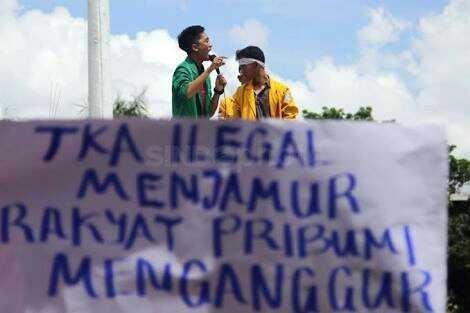 TKA ILEGAL
MENJAMUR
RAKYAT PRIBUMI
MENGANGGUR